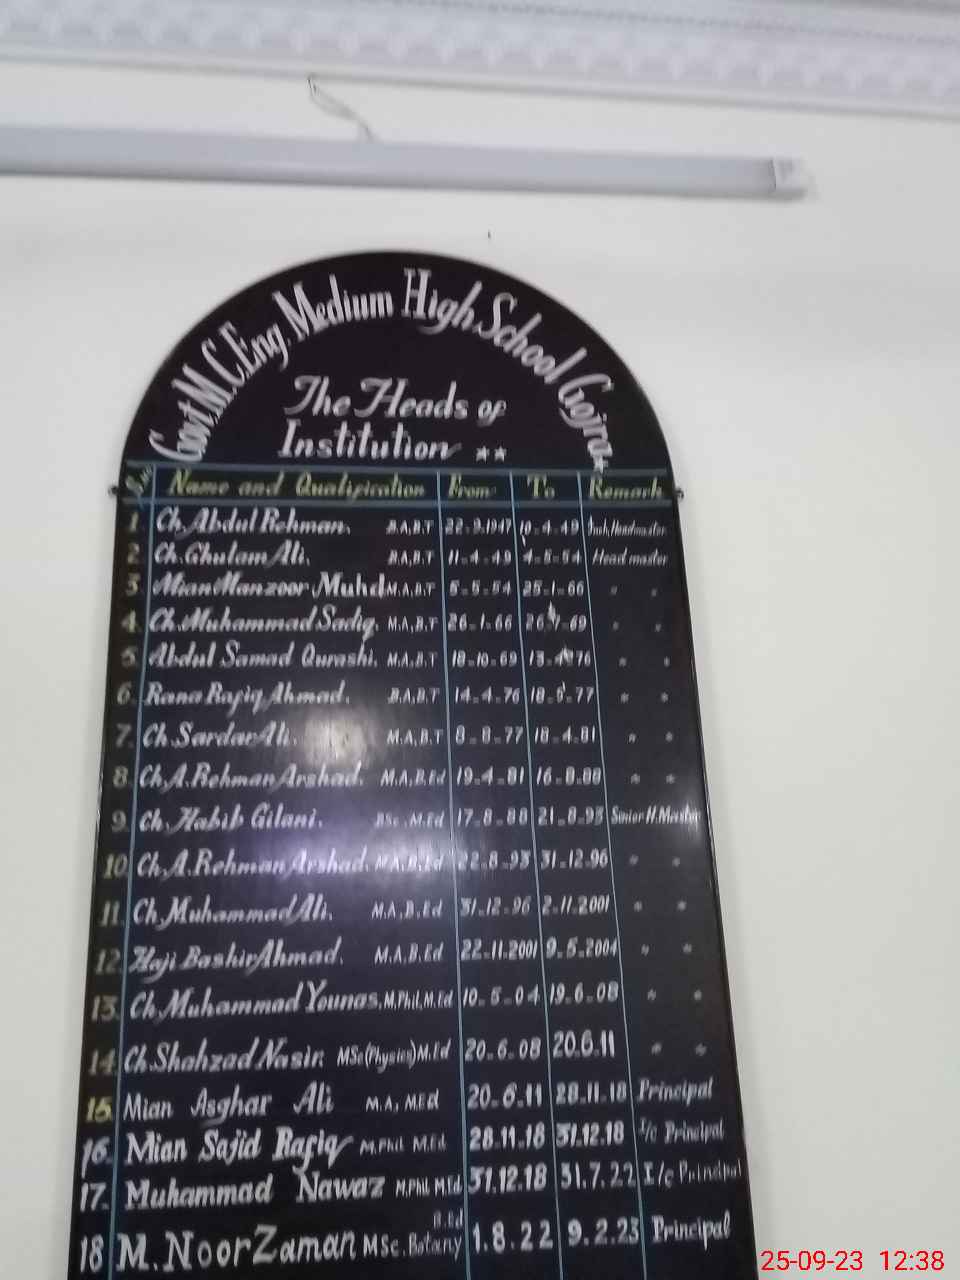 Govt. M.C. Eng. Medium High School Gojra
The Heads of
Institution **
Name and Qualification From To Remark
1. Ch. Abdul Rehman. B.A,B.T 22-9-1947 10-4-49 Headmaster
2. Ch. Ghulam Ali. B.A,B.T 11-4-49 4-5-54 Head master
3. Mian Manzoor Muhd M.A,B.T 5-5-54 25-1-66 " "
4. Ch. Muhammad Sadiq. M.A,B.T 26-1-66 " "
5. Abdul Samad Qurashi. M.A,B.T 18-10-69 " "
6. Rana Rafiq Ahmad. B.A,B.T 14-4-76 " "
7. Ch. Sardar Ali. M.A,B.T 8-8-77 18-4-81 " "
8. Ch. A. Rehman Arshad. M.A,B.Ed 19-4-81 16-8-88 " "
9. Ch. Habib Gilani. BSc.,M.Ed 17-8-88 21-8-93 Senior H.Master
10 Ch. A. Rehman Arshad. M.A,B.Ed 22-8-93 31-12-96 " "
11. Ch. Muhammad Ali. M.A,B.Ed 31-12-96 2-11-2001 " "
12 Haji Bashir Ahmad. M.A,B.Ed 22-11-2001 9-5-2004 " "
13. Ch. Muhammad Younas, M.Phil,M.Ed 10-5-04 19-6-08 " "
14. Ch. Shahzad Nasir. MSc(Physics)M.Ed 20-6-08 20.6.11 " "
15. Mian Asghar Ali M.A, M.Ed 20-6-11 28-11-18 Principal
16. Mian Sajid Rafiq M.Phil M.Ed 28.11.18 31.12.18 I/c Principal
17. Muhammad Nawaz M.Phil M.Ed 31.12.18 31.7.22 I/c Principal
18 M. Noor Zaman MSc. Botany B.Ed 1.8.22 9.2.23 Principal
25-09-23 12:38